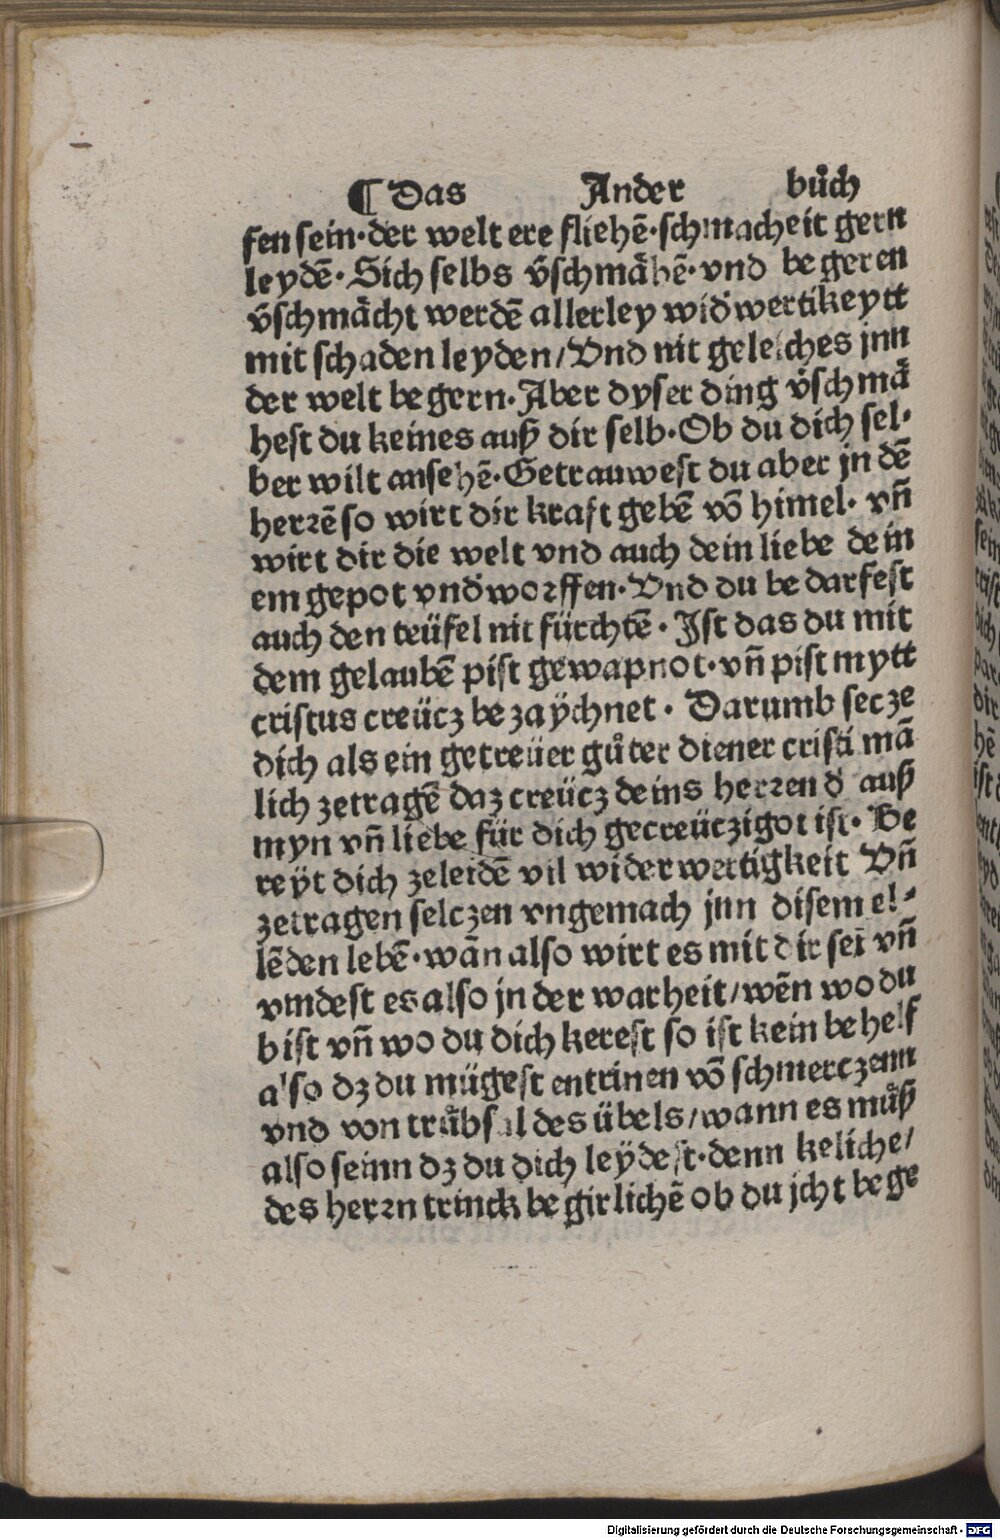 ¶ Das Ander bůch
fen sein·der welt ere fliehē·schmacheit gern
leydē·Sich selbs v̄schmähē·vnd begeren
v̄schmächt werdē allerley wid̄wertikeytt
mit schaden leyden/Vnd nit geleiches jnn
der welt begern·Aber dyser ding v̄schmä
hest du keines auß dir selb·Ob du dich sel⸗
ber wilt ansehē·Getrauwest du aber jn dē
herꝛē so wirt dir kraft gebē vō himel·vn̄
wirt dir die welt vnd auch dein liebe dein
em gepot vnd̄woꝛffen·Vnd du bedarfest
auch den teüfel nit fürchtē·Ist das du mit
dem gelaubē pist gewapnot·vn̄ pist mytt
cristus creücz bezaÿchnet·Darumb secze
dich als ein getreüer gůter diener cristi mā
lich zetragē daz creücz deins herꝛen d̄ auß
myn vn̄ liebe für dich gecreüczigot ist·Be
reÿt dich zeleidē vil widerwertigkeit Vn̄
zetragen selczen vngemach jnn disem el⸗
lēden lebē·wān also wirt es mit dir sei vn̄
vindest es also jn der warheit/wēn wo du
bist vn̄ wo du dich kerest so ist kein behelf
also dz du mügest entrinen vō schmerczenn
vnd von trübsal des übels/wann es můß
also seinn dz du dich leÿdest·denn keliche/
des herꝛn trinck begirlichē ob du jcht bege
Digitalisierung gefördert durch die Deutsche Forschungsgemeinschaft - DFG